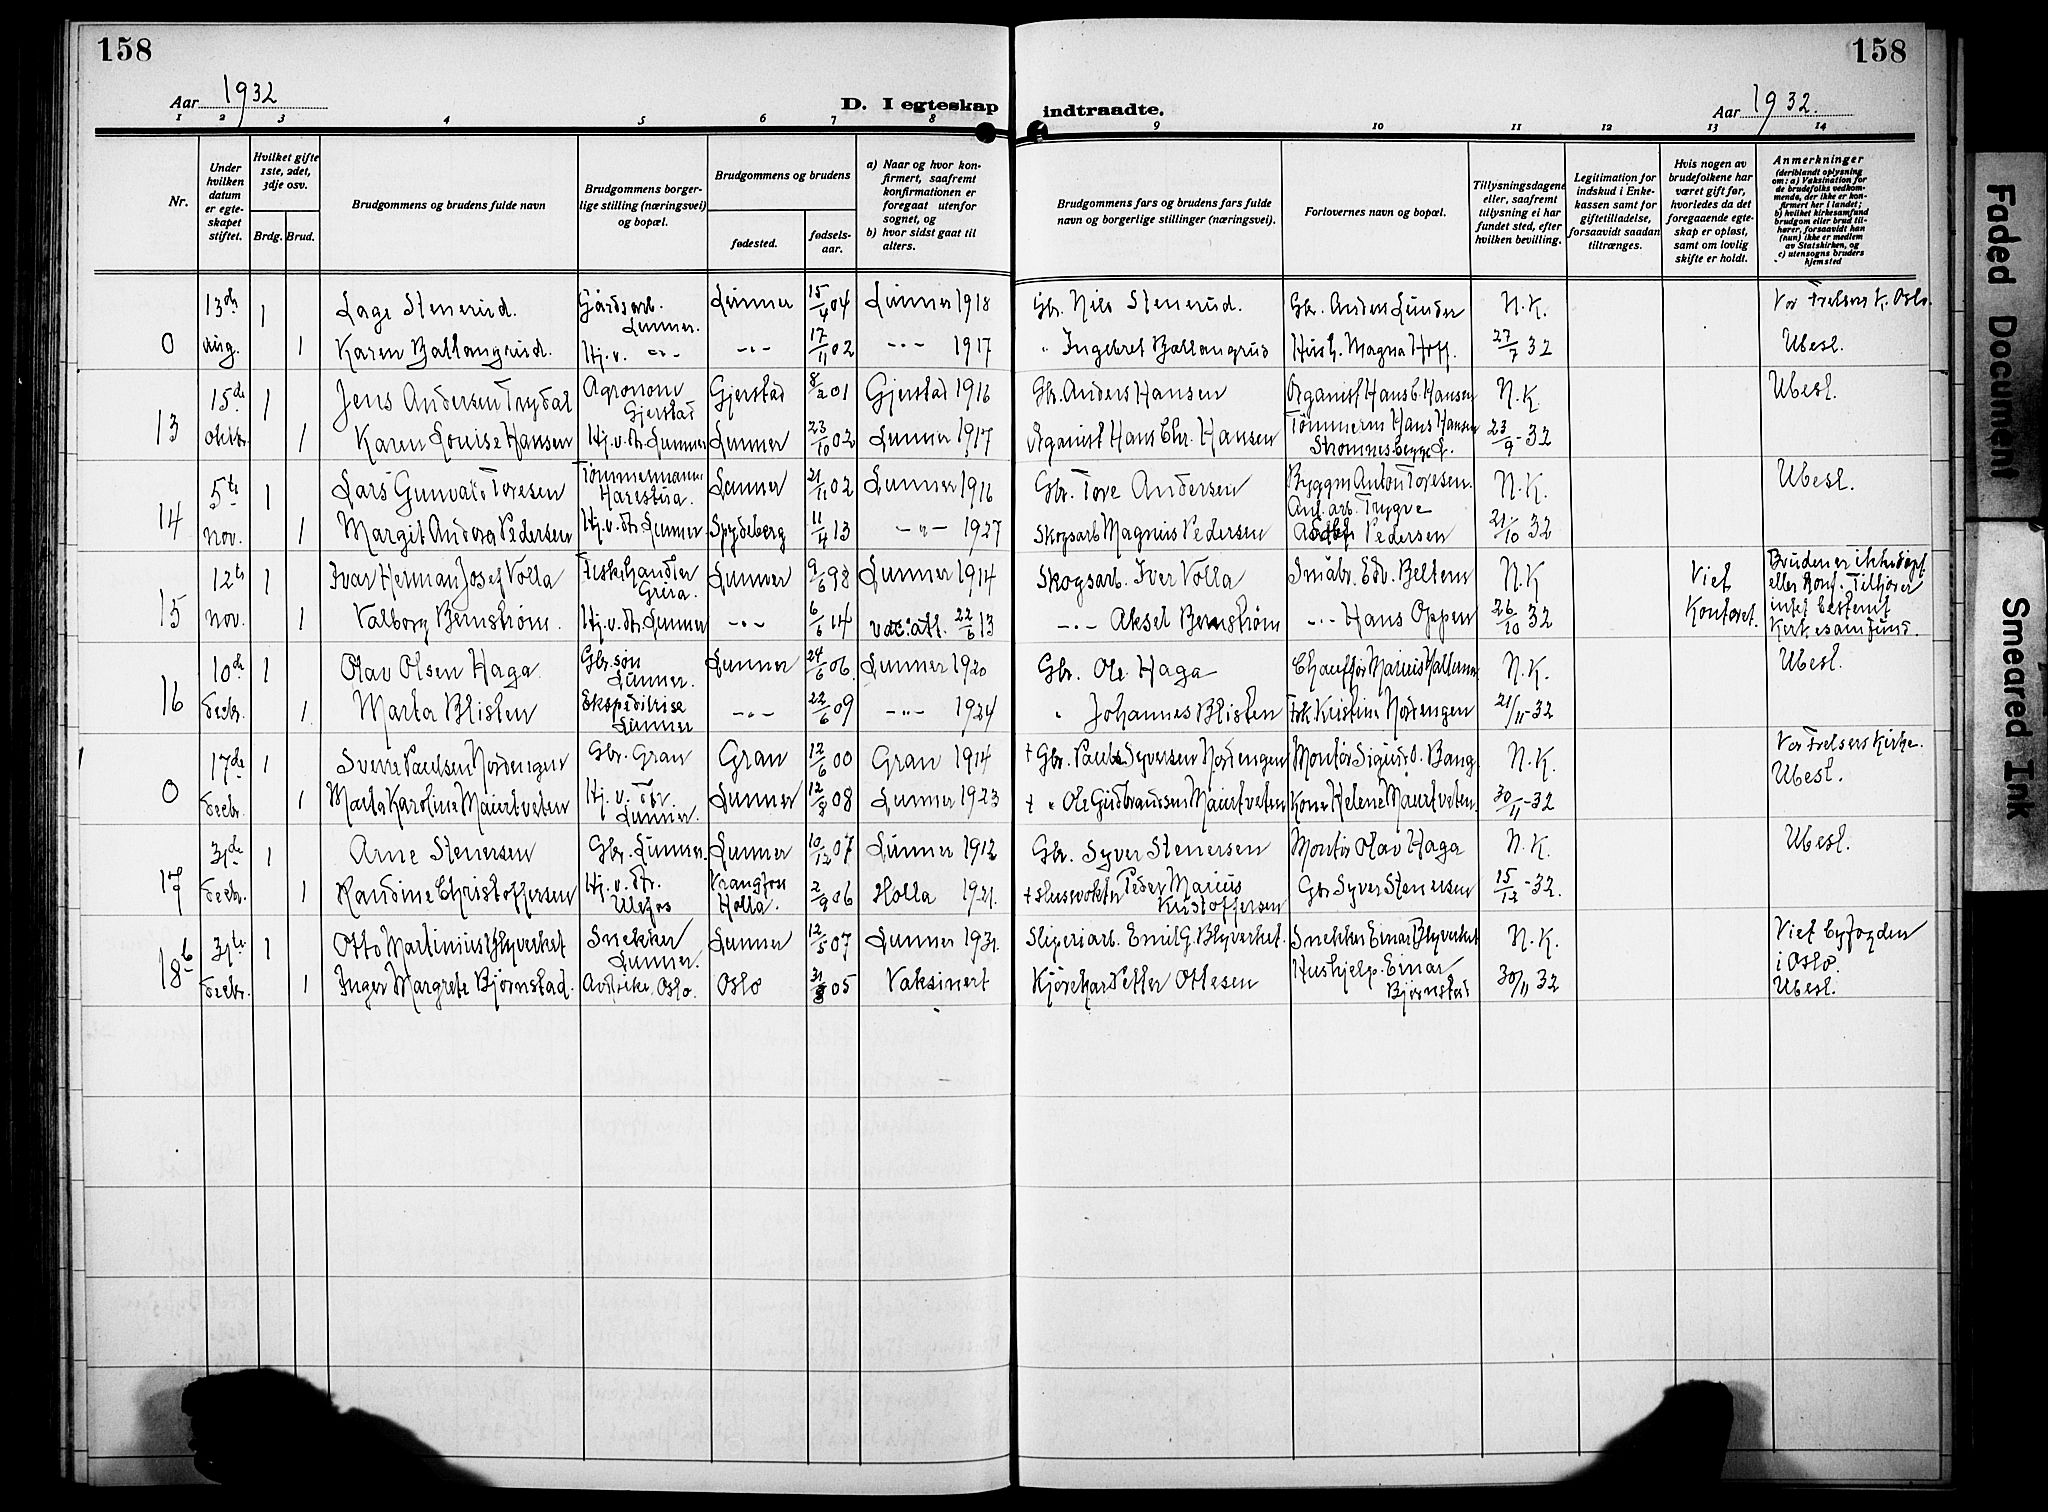 158
158
Aar 1932
D. I egteskap indtraadte.
Aar 1932.
1 2 3 4 5 6 7 8 9 10 11 12 13 14
Nr.
Under hvilken datum er egteskapet stiftet.
Hvilket gifte 1ste, 2det, 3dje osv.
Brdg. Brud.
Brudgommens og brudens fulde navn
Brudgommens borgerlige stilling (næringsvei) og bopæl.
Brudgommens og brudens
fødested.
fødselsaar.
a) Naar og hvor konfirmert, saafremt konfirmationen er foregaat utenfor sognet, og
b) hvor sidst gaat til alters.
Brudgommens fars og brudens fars fulde navn og borgerlige stillinger (næringsvei).
Forlovernes navn og bopæl.
Tillysningsdagene eller, saafremt tillysning ei har fundet sted, efter hvilken bevilling.
Legitimation for indskud i Enkekassen samt for giftetilladelse, forsaavidt saadan tiltrænges.
Hvis nogen av brudefolkene har været gift før, hvorledes da det foregaaende egteskap er opløst, samt om lovlig skifte er holdt.
Anmerkninger (deriblandt oplysning om: a) Vaksination for de brudefolks vedkommende, der ikke er konfirmert her i landet; b) hvilket kirkesamfund brudgom eller brud tilhører, forsaavidt han (hun) ikke er medlem av Statskirken, og c) utensogns bruders hjemsted
13de 1 Lage Stenerud. Gårdsarb. Lunner. Lunner 15/4 04 Lunner 1918 Gbr. Nils Stenerud. Gbr. Anders Lunder N.K. Vor Frelsers K. Oslo.
0 aug. 1 Karen Ballangrud. Hj.v. -"- -"- 17/11 02 -"- 1917 " Ingebret Ballangrud Hush. Magna Hoff. 27/7 32 Ubesl.
15de 1 Jens Andersen Trydal Agronom Gjerstad Gjerstad 8/2 01 Gjerstad 1916 Gbr. Anders Hansen Hans Hansen N.K. Ubesl.
13 oktbr. 1 Karen Louise Hansen Hj.v. dtr. Lunner Lunner 23/10 02 Lunner 1917 Hans Chr. Hansen Tømmerm Hans Hansen 23/9-32
5te 1 Lars Gunvald Toresen Tømmermann Harestua. Lunner 21/11 02 Lunner 1916 Gbr. Tore Andersen Byggm Anton Toresen. N.K. Ubesl.
14 nov. 1 Margit Andora Pedersen Hj.v. dtr. Lunner Spydeberg 11/4 13 -"- 1927 Skogsarb Magnus Pedersen Anl. arb. Trygve Pedersen 21/10 32
12te 1 Ivar Herman Josef Volla Fiskehandler Grua. Lunner 9/6 98 Lunner 1914 Skogsarb. Iver Volla Småbr. Edv. Beltem N.K Viet Bruden er ikke døpt eller Konf. Tilhører
15 nov. 1 Valborg Bernstrøm. Hj.v. dtr. Lunner -"- 6/6 14 vac. att. 22/6 13 -"- Aksel Bernstrøm -"- Hans Oppen 26/10 32 Kontoret. intet bestemt Kirkesamfund.
10de 1 Olav Olsen Haga Gbr. søn Lunner. Lunner 24/6 06. Lunner 1920 Gbr. Ole Haga Chauffør Marius N.K. Ubesl.
16 Decbr. 1 Marta Blisten Ekspeditrise Lunner -"- 22/6 09 -"- 1924 " Johannes Blisten Frk. Kristine Nordengen 21/11-32
17de 1 Sverre Paulsen Nordengen Gbr. Gran Gran 12/6 00 Gran 1914 + Gbr. Paul Syversen Nordengen Montør Sigurd O. Bang N.K. Vor Frelsers Kirke.
0 Decbr. 1 Marta Karoline Maiertveten Hj.v. Dtr. Lunner. Lunner 12/8 08 Lunner 1923 + " Ole Gudbrandsen Maiertveten Kone Helene Maiertveten. 30/11-32 Ubesl.
31de 1 Arne Stenersen Gbr. Lunner. Lunner 10/12 07 Lunner 1912 Gbr. Syver Stenersen Montør Olav Haga N.K. Ubesl.
17 Decbr. 1 Randine Christoffersen Hj.v. dtr. Ulefos Holla. 2/8 06 Holla 1921. + Slusevokter Peder Marius Kristoffersen Gbr Syver Stenersen 15/12-32.
31te 1 Otto Martinius Blyverket Snekker Lunner. Lunner 12/5 07 Lunner 1931. Sliperiarb. Emil G. Blyverket. Snekker Einar Blyverket N.K. Viet byfogden i Oslo.
18b Decbr. 1 Inger Margrete Bjørnstad. Oslo. Oslo 05 Vaksinert Kjørekar Petter Ottesen Hushjelp. Einar Bjørnstad 30/11 32 Ubesl.
Faded Document
Smeared Ink